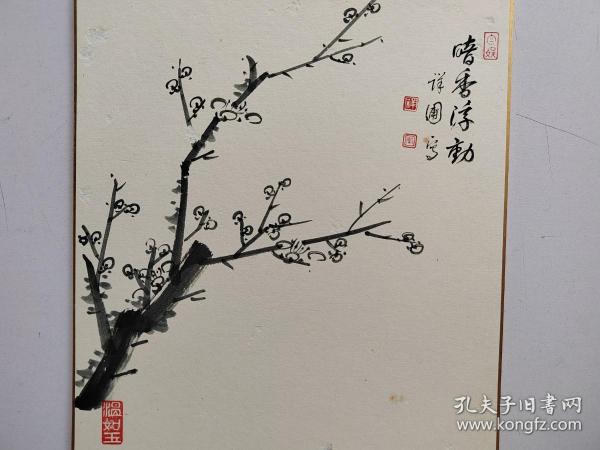 暗香浮動
祥圃寫
温如玉
孔夫子旧书网
www.kongfz.com